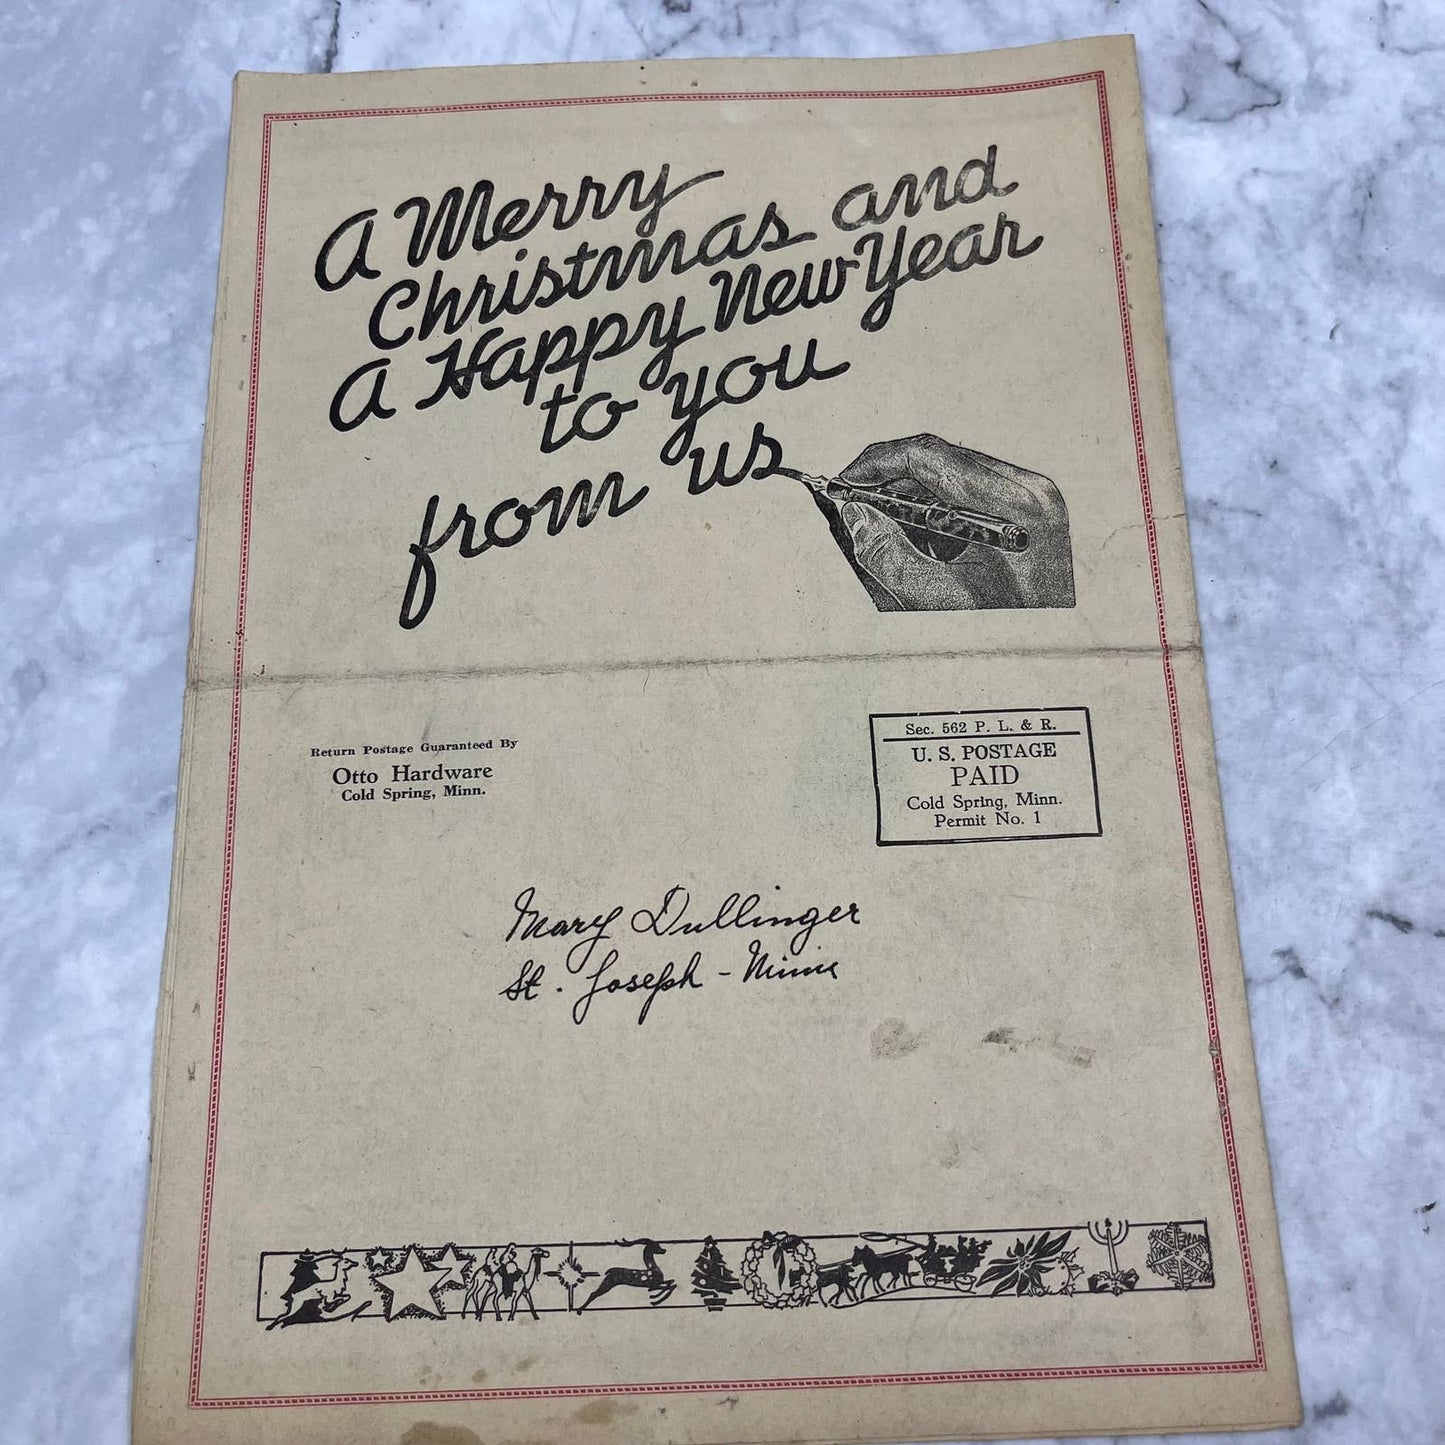 A Merry
Christmas and
A Happy New Year
to you
from us
Return Postage Guaranteed By
Otto Hardware
Cold Spring, Minn.
Sec. 562 P. L. & R.
U. S. POSTAGE
PAID
Cold Spring, Minn.
Permit No. 1
Mary Dullinger
St. Joseph - Minn